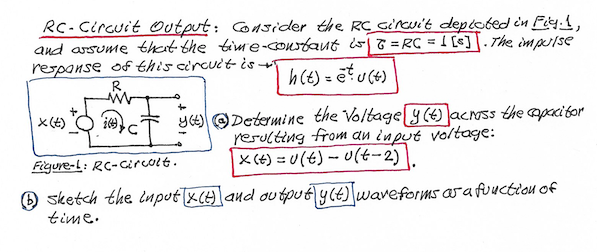 RC-Circuit Output: Consider the RC circuit depicted in Fig.1,
and assume that the time-constant is τ = RC = 1 [s]. The impulse
response of this circuit is →
h(t) = e^-t u(t)
R
x(t) + - i(t) C + y(t) -
Figure-1: RC-Circuit.
(a) Determine the voltage y(t) across the capacitor
resulting from an input voltage:
x(t) = u(t) - u(t-2).
(b) sketch the input x(t) and output y(t) waveforms as a function of
time.